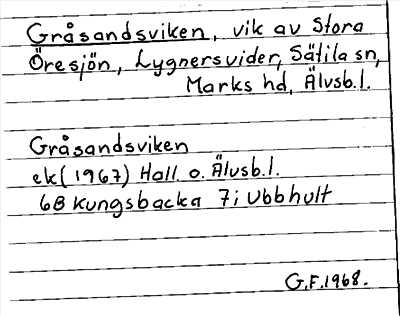 Gråsandsviken, vik av Stora
Öresjön, Lygnersvider, Sätila sn,
Marks hd, Älvsb.l.
Gråsandsviken
ek (1967) Hall. o. Älvsb.l.
6B Kungsbacka 7i Ubbhult
G.F. 1968.